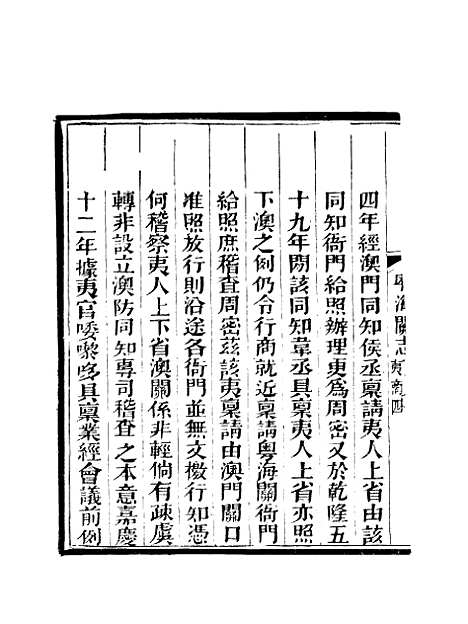 粵海關志 夷商四
四年經澳門同知侯丞稟請夷人上省由該
同知衙門給照辦理更爲周密又於乾隆五
十九年閒該同知韋丞具稟夷人上省亦照
下澳之例仍令行商就近稟請粵海關衙門
給照庶稽查周密茲該夷稟請由澳門關口
准照放行則沿途各衙門並無文檄行知憑
何稽察夷人上下省澳關係非輕倘有疎虞
轉非設立澳防同知專司稽查之本意嘉慶
十二年據夷官喽嚟哆具稟業經會議前例